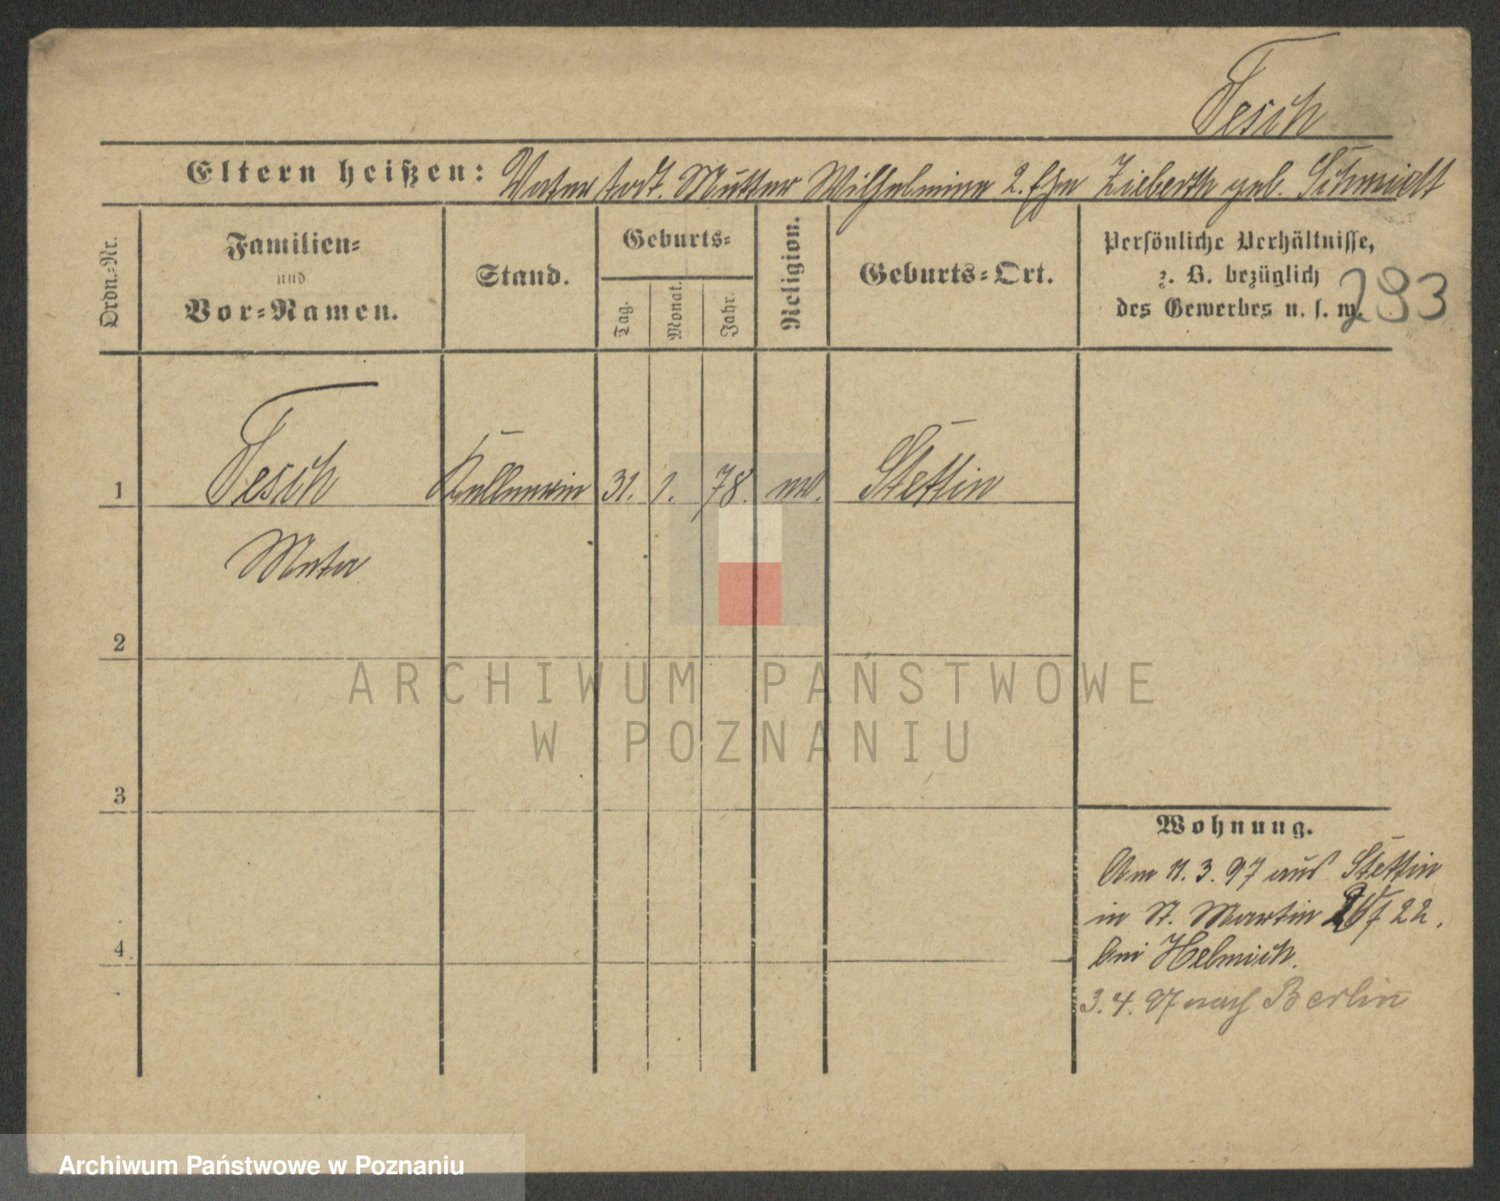 Tesch
Eltern heißen: Vater todt. Mutter Wilhelmine 2. Ehe Zieberth geb. Schmidt
Ordn.=Nr.
Familien=
und
Vor=Namen.
Stand.
Geburts=
Tag.
Monat.
Jahr.
Religion.
Geburts=Ort.
Persönliche Verhältnisse,
z. B. bezüglich
des Gewerbes u. s. w.
293
1 Tesch Kellnerin 31. 1. 78. ev. Stettin
Meta
2
3
4
Wohnung.
Am 11. 3. 97 aus Stettin
in St. Martin 22.
bei Helmich.
3. 4. 97 nach Berlin
ARCHIWUM PAŃSTWOWE
W POZNANIU
Archiwum Państwowe w Poznaniu